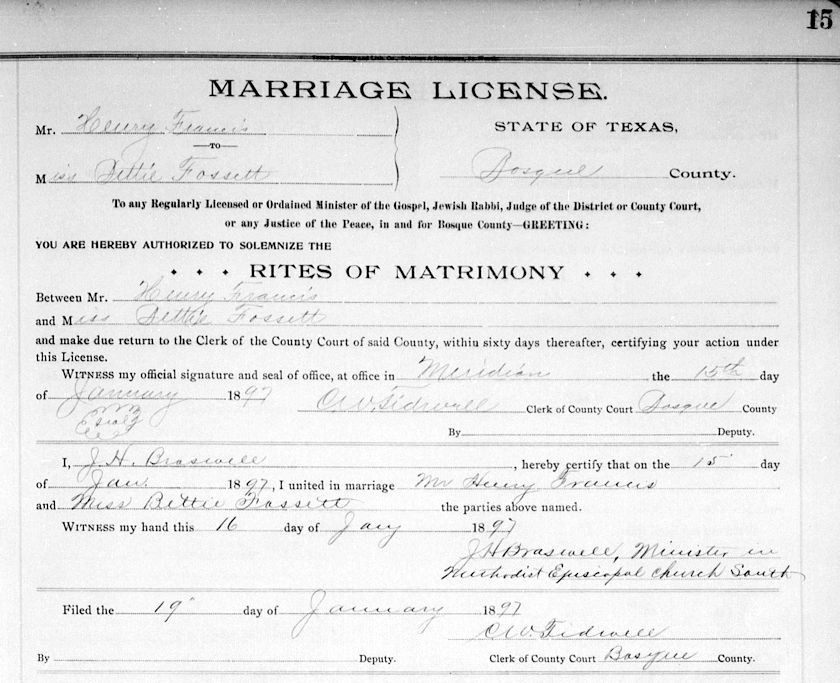 15
MARRIAGE LICENSE.
Mr. Henry Francis
TO
Miss Bettie Fossett
STATE OF TEXAS,
Bosque County.
To any Regularly Licensed or Ordained Minister of the Gospel, Jewish Rabbi, Judge of the District or County Court,
or any Justice of the Peace, in and for Bosque County—GREETING:
YOU ARE HEREBY AUTHORIZED TO SOLEMNIZE THE
RITES OF MATRIMONY
Between Mr. Henry Francis
and Miss Bettie Fossett
and make due return to the Clerk of the County Court of said County, within sixty days thereafter, certifying your action under
this License.
WITNESS my official signature and seal of office, at office in Meridian the 15th day
of January 1897 CW. Tidwell Clerk of County Court Bosque County
Seal
By Deputy.
I, J.H. Braswell, hereby certify that on the 15 day
of Jan. 1897, I united in marriage Mr Henry Francis
and Miss Bettie Fossett the parties above named.
WITNESS my hand this 16 day of Jany 1897
J H Braswell, Minister in
Methodist Episcopal Church South
Filed the 19" day of January 1897
CW. Tidwell
By Deputy. Clerk of County Court Bosque County.